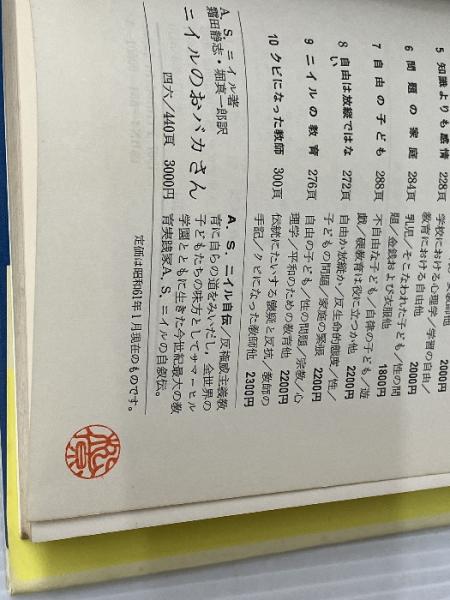 5 知識よりも感情 228頁
学校における心理学/学習の自由/
教育における自由他 2000円
6 問題の家庭 284頁
乳児/そこなわれた子ども/性の問
題/金銭および衣服他 1800円
7 自由の子ども 288頁
不自由な子ども/自律の子ども/遊
戯/硬教育は役に立つか他 2200円
8 自由は放縦ではな
い 272頁
自由か放縦か/反生命的態度/性/
子どもの問題/家庭の緊張 2200円
9 ニイルの教育 276頁
自由の子ども/性の問題/宗教/心
理学/平和のための教育他 2200円
10 クビになった教師 300頁
伝統にたいする懐疑と反抗/教師の
手記/クビになった教師他 2300円
A. S. ニイル著
霜田静志・堀真一郎訳
ニイルのおバカさん
四六/440頁 3000円
A. S. ニイル自伝/反権威主義教
育に自らの道をみいだし，全世界の
子どもたちの味方としてサマーヒル
学園とともに生きた今世紀最大の教
育実践家A. S. ニイルの自叙伝。
定価は昭和61年1月現在のものです。